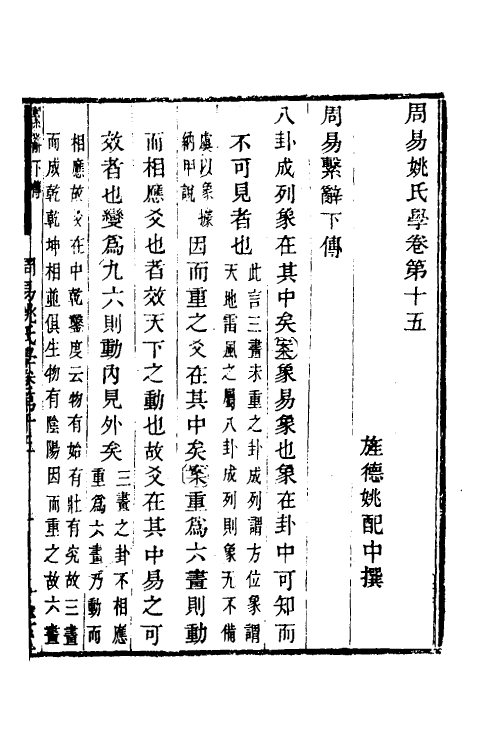 周易姚氏學卷第十五
旌德姚配中撰
周易繫辭下傳
八卦成列象在其中矣案象易象也象在卦中可知而
不可見者也
此言三畫未重之卦成列謂方位象謂
天地雷風之屬八卦成列則象无不備
虞以象據
納甲說
因而重之爻在其中矣案重爲六畫則動
而相應爻也者效天下之動也故爻在其中易之可
效者也變爲九六則動內見外矣
三畫之卦不相應
重爲六畫乃動而
相應故爻在中乾鑿度云物有始有壯有究故三畫
而成乾乾坤相並俱生物有陰陽因而重之故六畫
繫辭下傳
周易姚氏學卷第十五